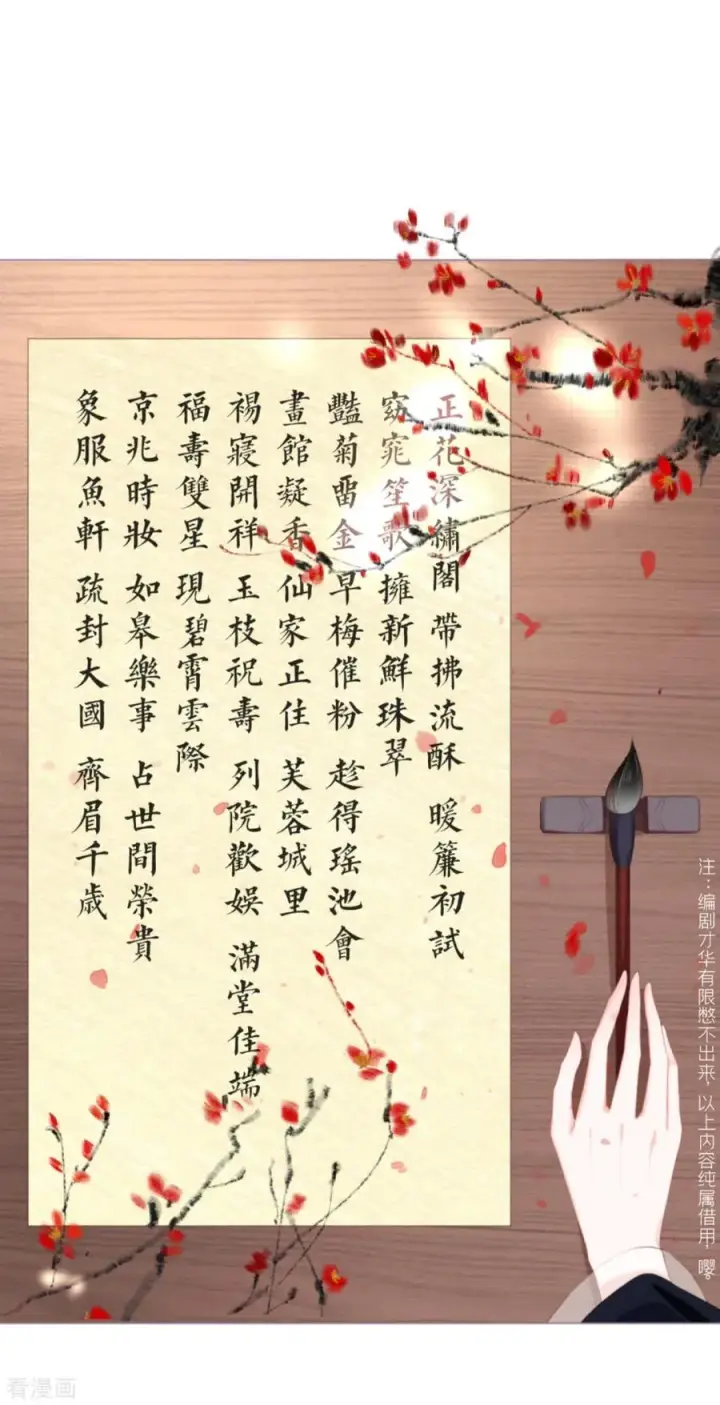 正花深繡閣 帶拂流酥 暖簾初試
窈窕笙歌 擁新鮮珠翠
豔菊畱金 早梅催粉 趁得瑤池會
畫館凝香 仙家正住 芙蓉城里
裼寢開祥 玉枝祝壽 列院歡娛 滿堂佳端
福壽雙星 現碧霄雲際
京兆時妝 如皋樂事 占世間榮貴
象服魚軒 疏封大國 齊眉千歲
注：编剧才华有限憋不出来，以上内容纯属借用，嘤。
看漫画